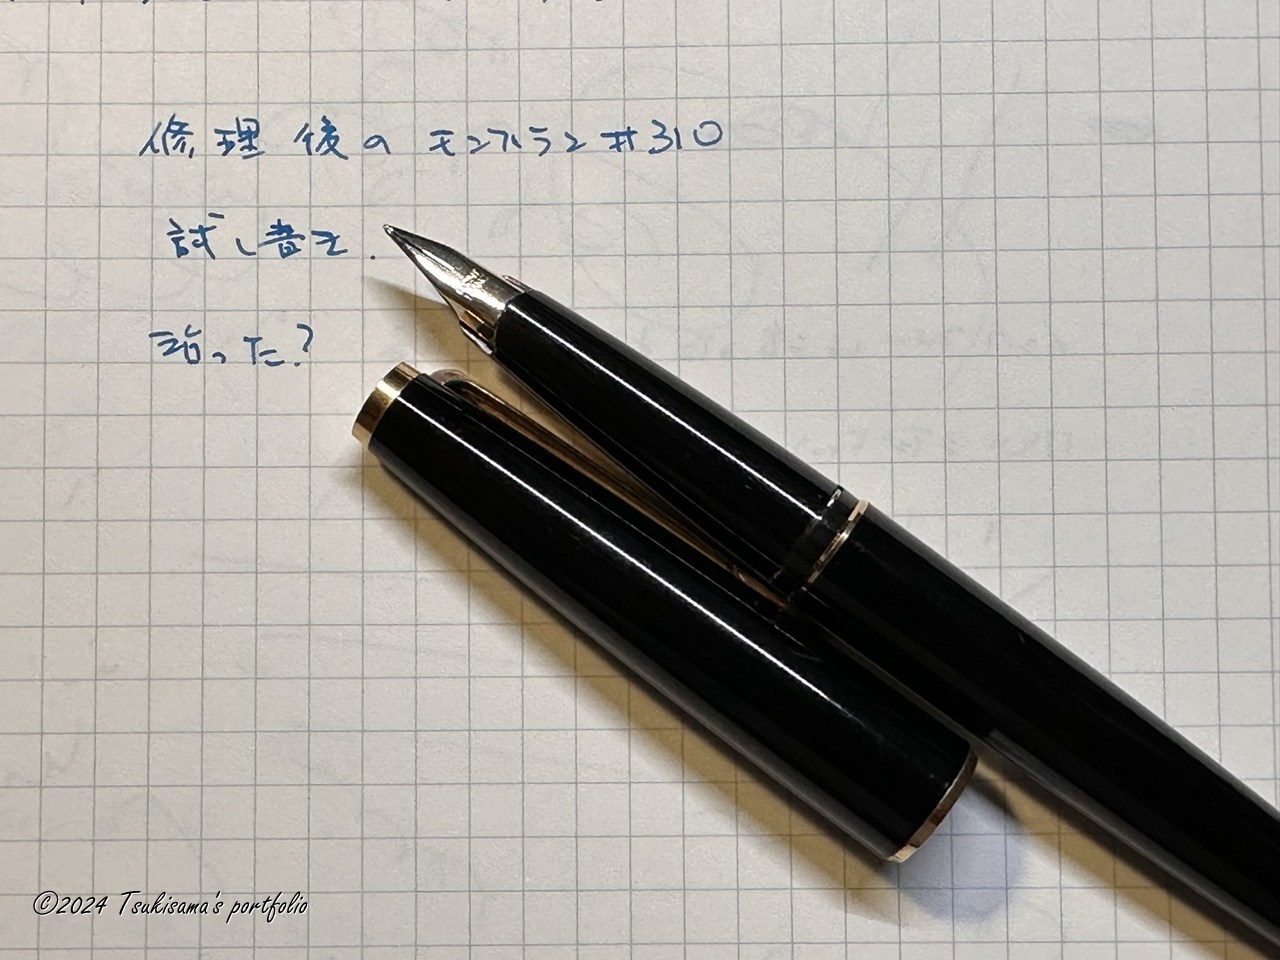 修理後のモンブラン#310
試し書き.
治った?
©2024 Tsukisama's portfolio